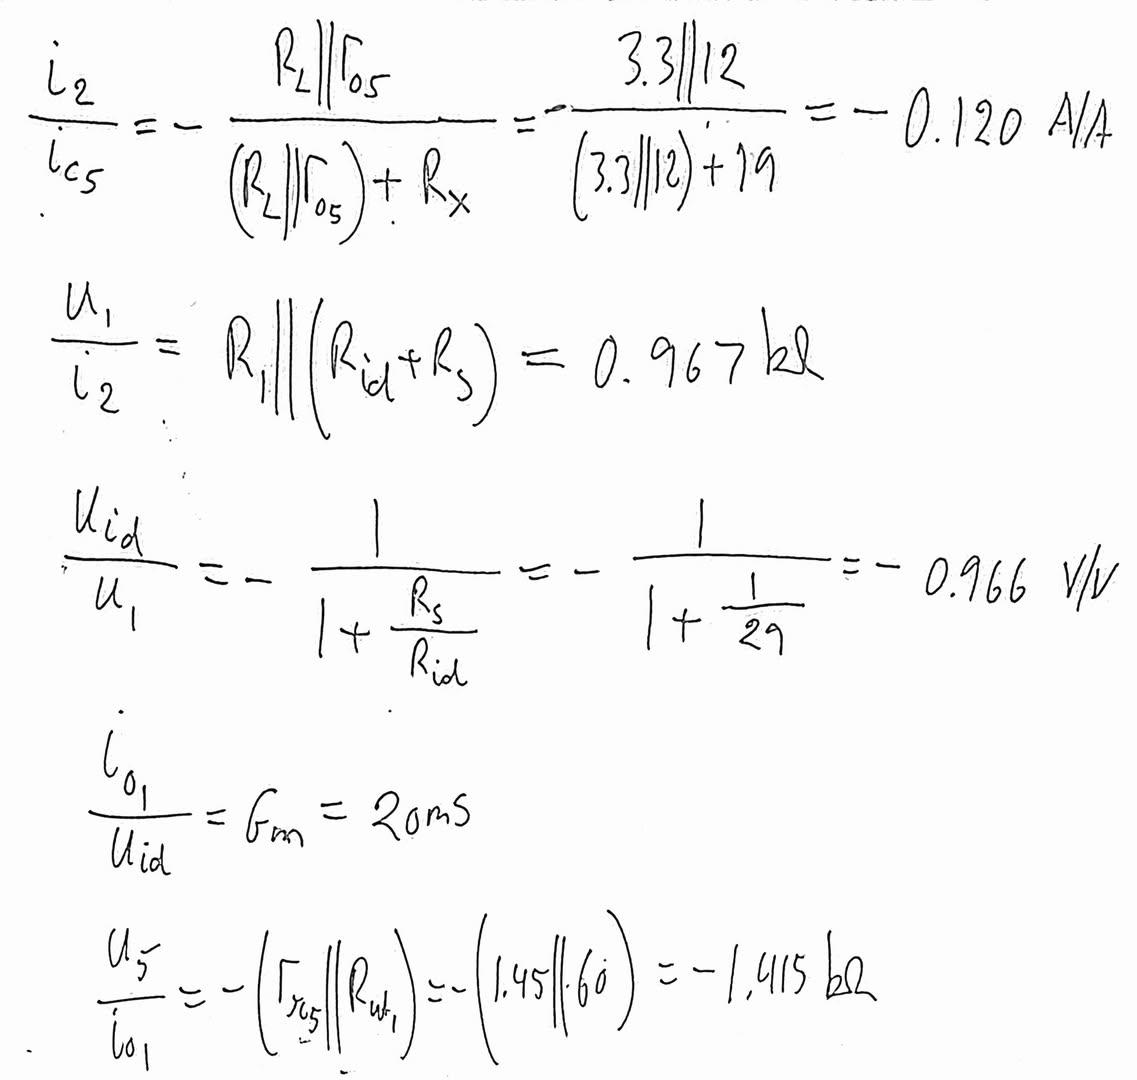 i₂/i_c5 = - (R_L||r_o5)/((R_L||r_o5) + R_x) = - (3.3||12)/((3.3||12) + 19) = - 0.120 A/A
u₁/i₂ = R₁||(R_id + R_s) = 0.967 kΩ
u_id/u₁ = - 1/(1 + R_s/R_id) = - 1/(1 + 1/29) = - 0.966 V/V
i_o1/u_id = G_m = 20mS
u₅/i_o1 = - (r_π5||R_ut1) = - (1.45||60) = - 1.415 kΩ